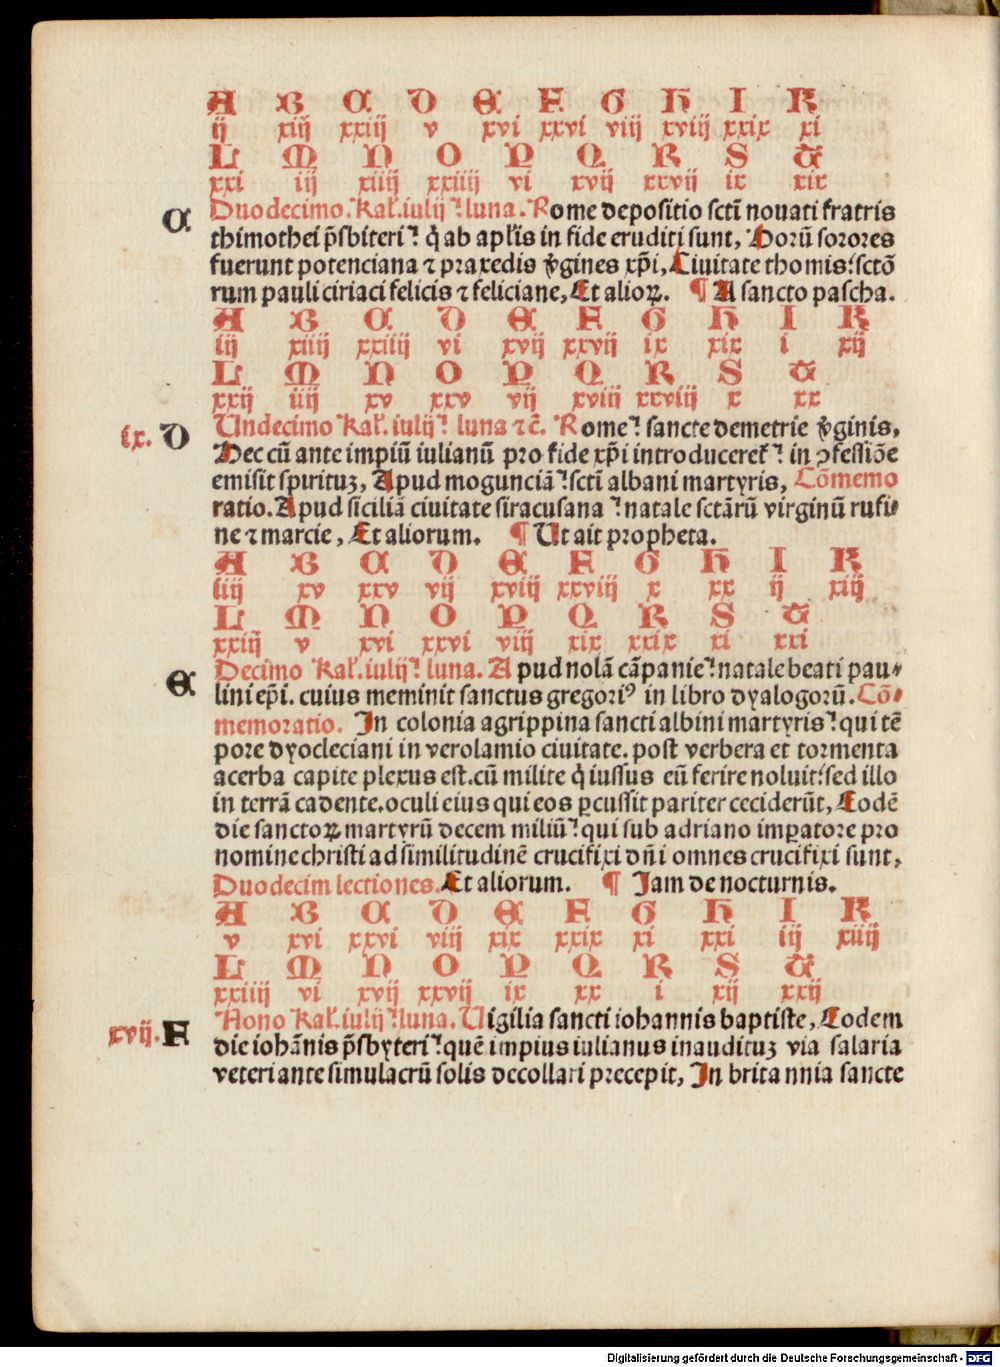 A B C D E F G H I K
ij xiij xxiij v xvi xxvi viij xviij xxix xi
L M N O P Q R S T
xxi iij xiiij xxiiij vi xvij xxvij ix xix
C Duodecimo. kal̄. iulij⁊ luna. Rome depositio sctī nouati fratris
thimothei p̄sbiteri⁊ q̇ ab apl̄is in fide eruditi sunt, Horū sorores
fuerunt potenciana ⁊ praxedis v̄gines xp̄i, Ciuitate thomis: sctō
rum pauli ciriaci felicis ⁊ feliciane, Et alioꝝ. ¶ A sancto pascha.
A B C D E F G H I K
iij xiiij xxiiij vi xvij xxvij ix xix i xij
L M N O P Q R S T
xxij iiij xv xxv vij xviij xxviij x xx
ix. D Undecimo kal̄. iulij⁊ luna ⁊c̄. Rome⁊ sancte demetrie v̄ginis,
Hec cū ante impiū iulianū pro fide xp̄i introduceret̄⁊ in ꝯfessiōe
emisit spirituꝫ, Apud mogunciā⁊ sctī albani martyris, Cōmemo
ratio. Apud siciliā ciuitate siracusana⁊ natale sctārū virginū rufi⸗
ne ⁊ marcie, Et aliorum. ¶ Ut ait propheta.
A B C D E F G H I K
iiij xv xxv vij xviij xxviij x xx ij xiij
L M N O P Q R S T
xxiij v xvi xxvi viij xix xxix xi xxi
E Decimo kal̄. iulij⁊ luna. Apud nolā cāpanie⁊ natale beati pau⸗
lini ep̄i. cuius meminit sanctus gregoriꝰ in libro dyalogorū. Cō⸗
memoratio. In colonia agrippina sancti albini martyris⁊ qui tē
pore dyocleciani in verolamio ciuitate. post verbera et tormenta
acerba capite plexus est. cū milite q̇ iussus eū ferire noluit: sed illo
in terrā cadente. oculi eius qui eos ꝑcussit pariter ceciderūt, Eodē
die sanctoꝝ martyrū decem miliū⁊ qui sub adriano imꝑatore pro
nomine christi ad similitudinē crucifixi dn̄i omnes crucifixi sunt,
Duodecim lectiones. Et aliorum. ¶ Iam de nocturnis.
A B C D E F G H I K
v xvi xxvi viij xix xxix xi xxi iij xiiij
L M N O P Q R S T
xxiiij vi xvij xxvij ix xx i xij xxij
xvij. F Nono kal̄. iulij⁊ luna. Uigilia sancti iohannis baptiste, Eodem
die iohānis p̄sbyteri⁊ quē impius iulianus inaudituꝫ via salaria
veteri ante simulacrū solis decollari precepit, In britannia sancte
Digitalisierung gefördert durch die Deutsche Forschungsgemeinschaft - DFG